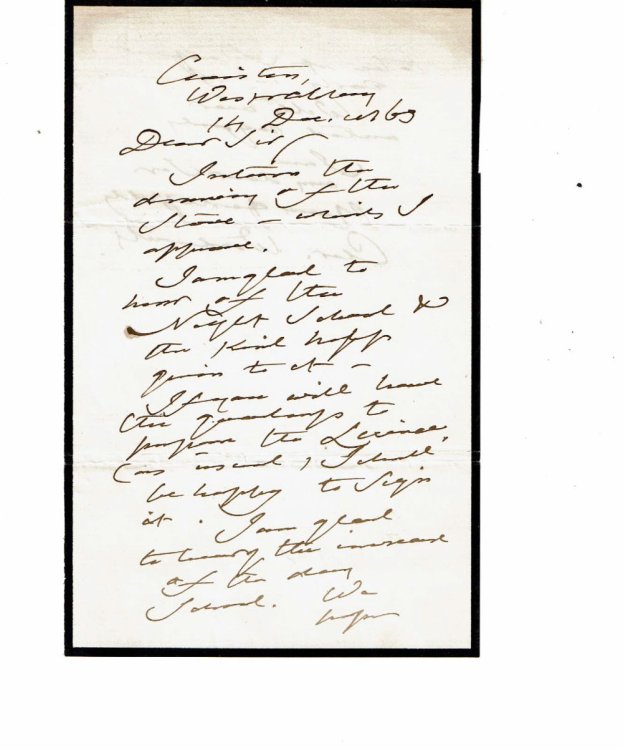 14 Dec. 1863
Dear Sir
I return the
drawing of the
Stove – which I
approve.
I am glad to
hear of the
Night School &
the kind help
given to it –
If you will have
the goodness to
prepare the Licence
(as usual, I shall
be happy to sign
it. I am glad
to hear of the increase
of the day
School. We
hope